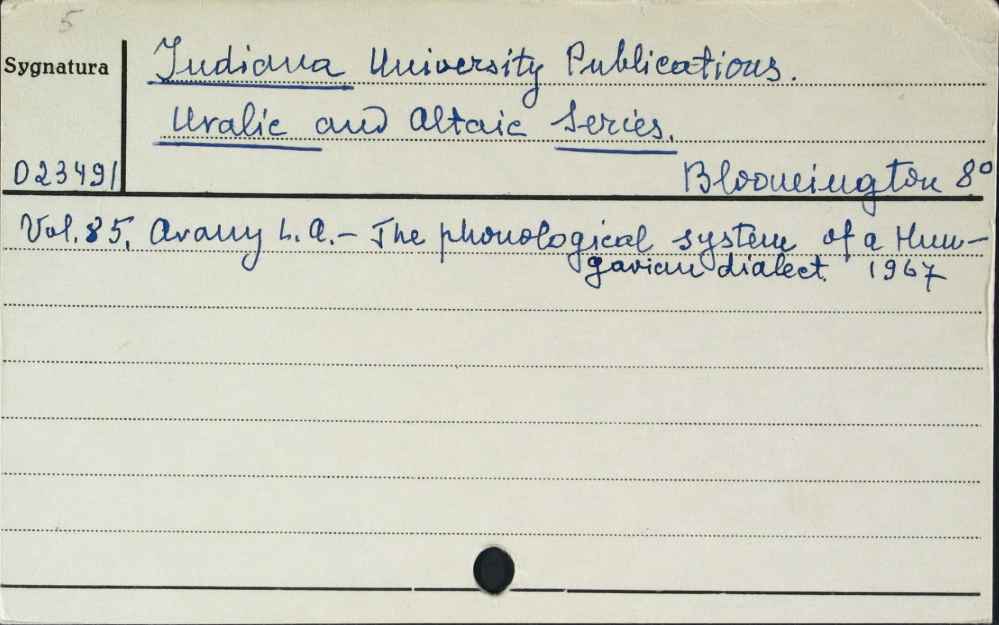 5
Sygnatura
Indiana University Publications.
Uralic and Altaic Series.
D23491
Bloomington 8°
Vol. 85. Arany L. A. – The phonological system of a Hun-
garian dialect. 1967